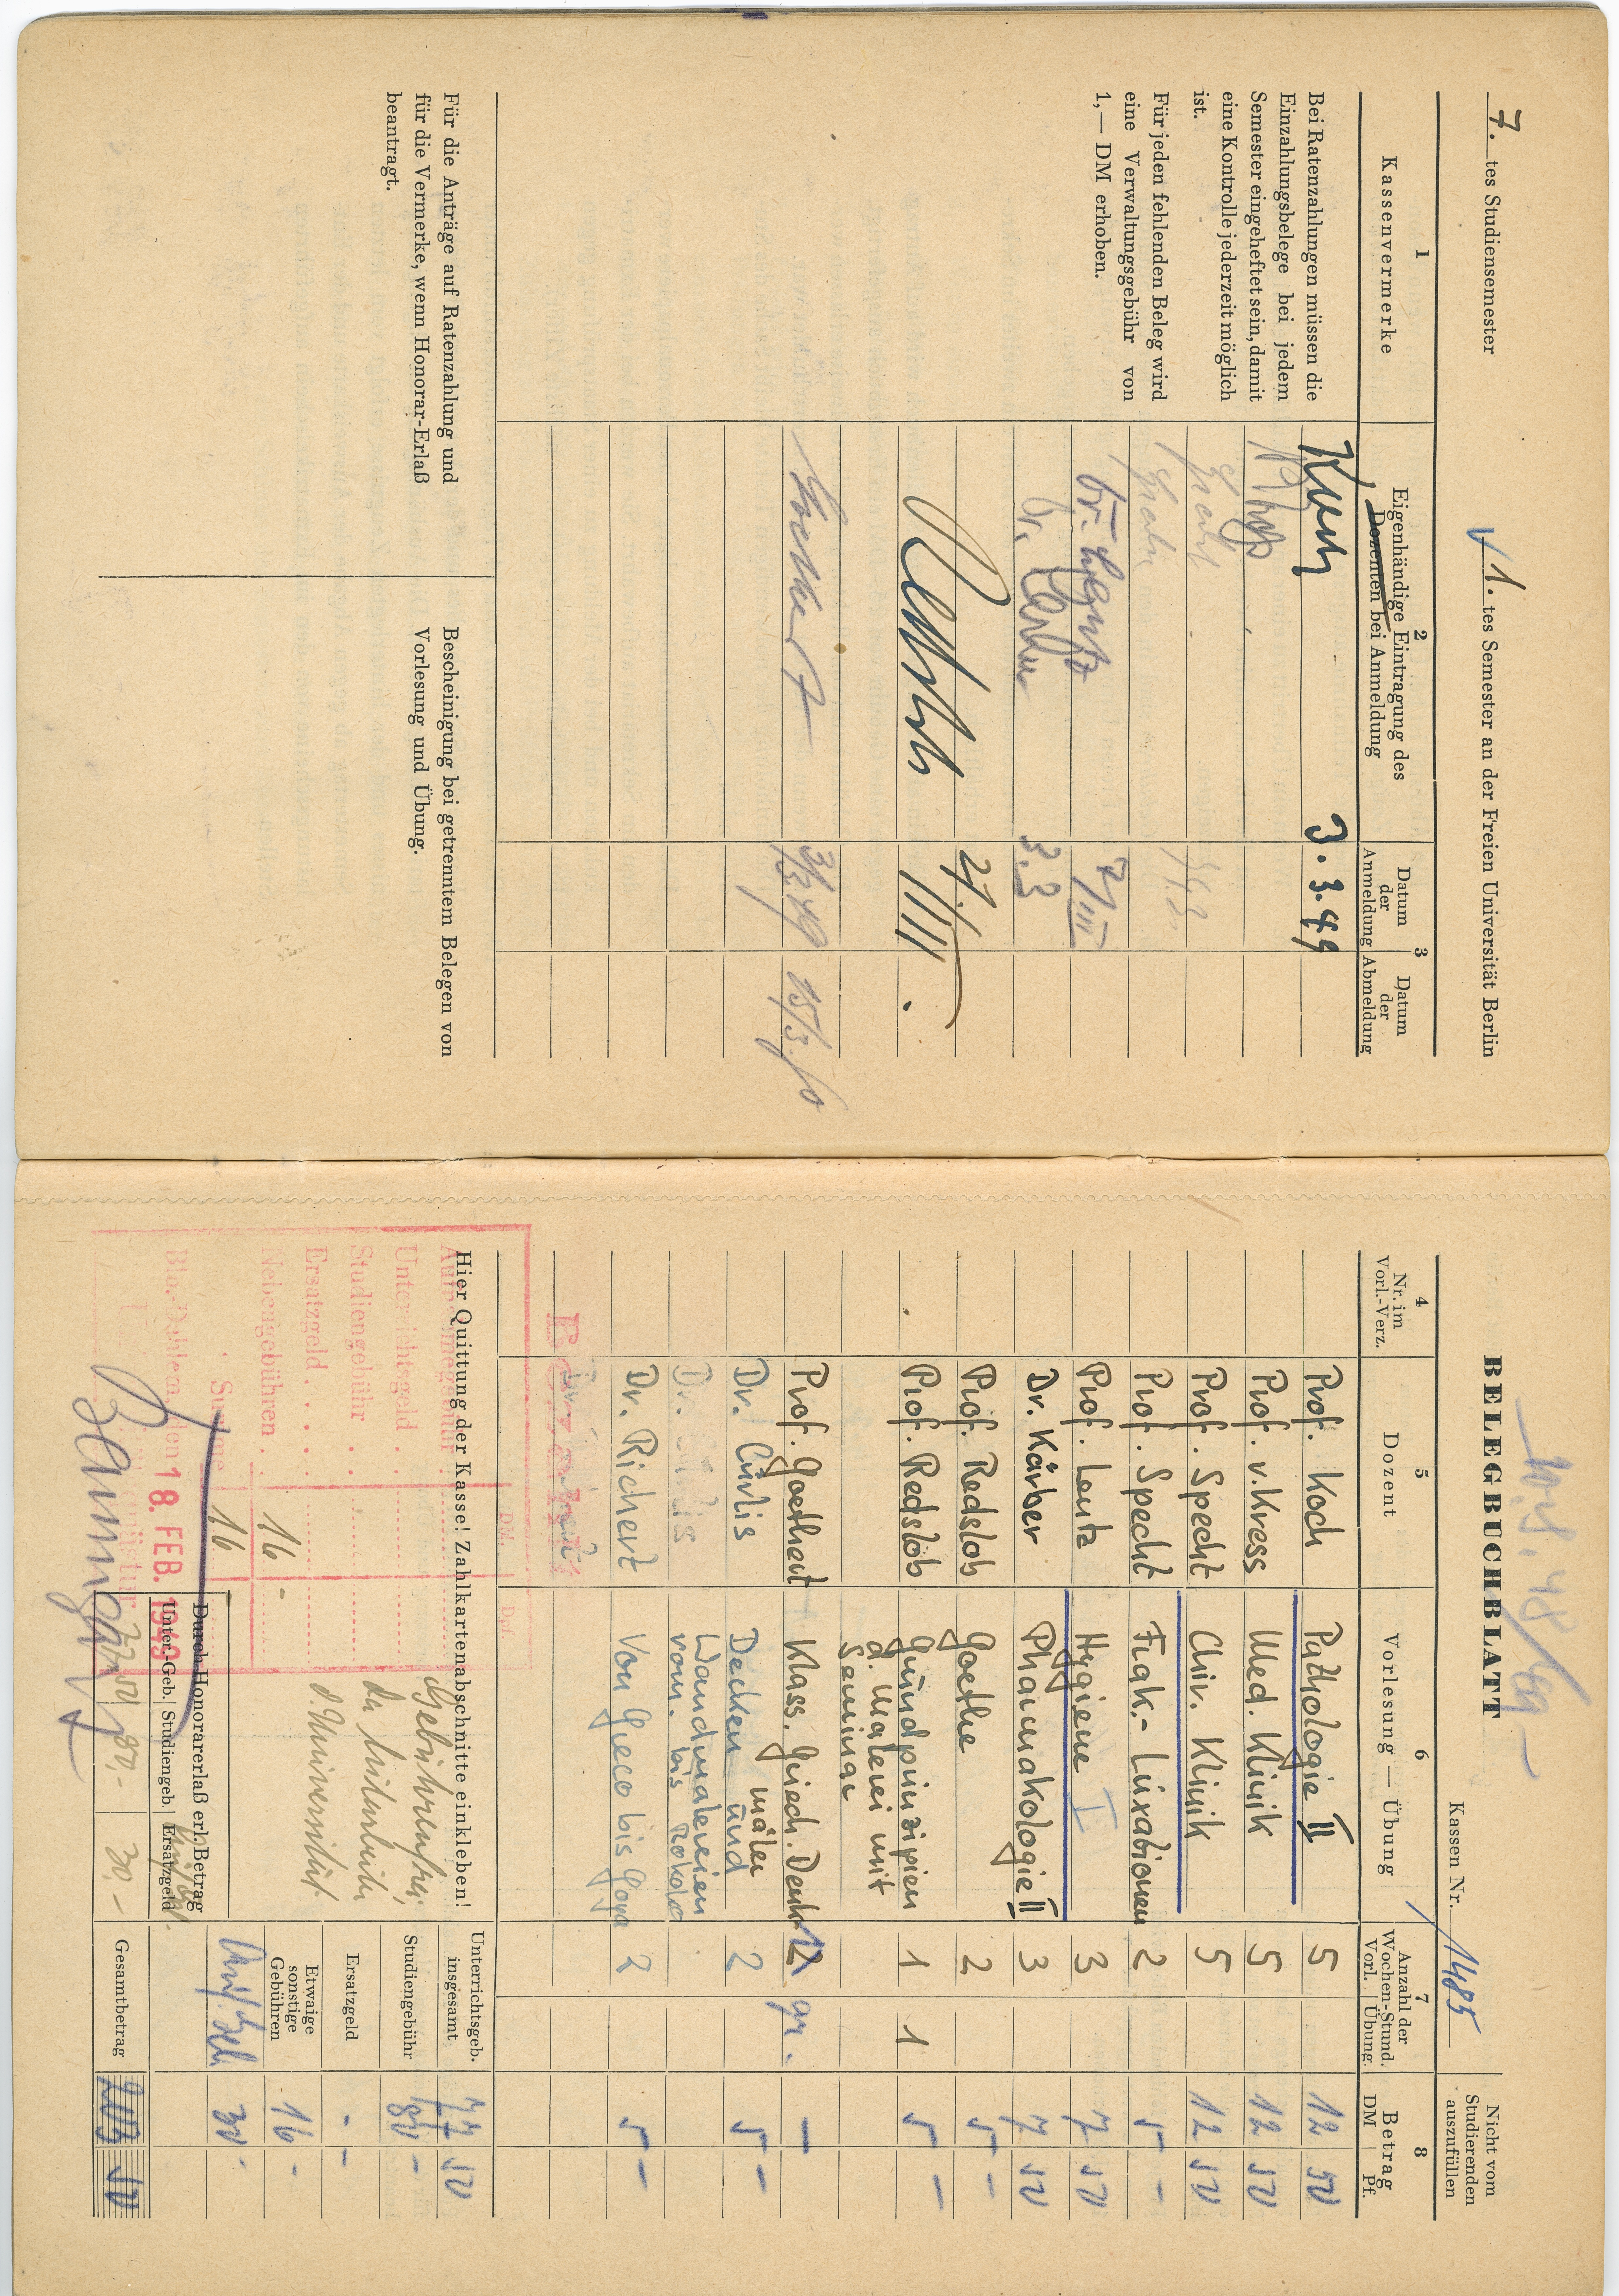 7. tes Studiensemester
1. tes Semester an der Freien Universität Berlin
1
Kassenvermerke
2
Eigenhändige Eintragung des
Dozenten bei Anmeldung
3
Datum
der
Anmeldung
Datum
der
Abmeldung
Bei Ratenzahlungen müssen die
Einzahlungsbelege bei jedem
Semester eingeheftet sein, damit
eine Kontrolle jederzeit möglich
ist.
Für jeden fehlenden Beleg wird
eine Verwaltungsgebühr von
1,— DM erhoben.
3.3.49
Dr.
7/III
3.3
3/3 49 15/3.50
Für die Anträge auf Ratenzahlung und
für die Vermerke, wenn Honorar-Erlaß
beantragt.
Bescheinigung bei getrenntem Belegen von
Vorlesung und Übung.
BELEGBUCHBLATT
Kassen Nr. 1485
Nicht vom
Studierenden
auszufüllen
4
Nr. im
Vorl.-Verz.
5
Dozent
6
Vorlesung — Übung
7
Anzahl der
Wochen-Stund.
Vorl. Übung
8
Betrag
DM Pf.
Prof. Koch Pathologie II 5 12 50
Prof. v. Kress Med. Klinik 5 12 50
Prof. Specht Chir. Klinik 5 12 50
Prof. Specht Frak.- Luxationen 2 5 -
Prof. Lentz Hygiene I 3 7 50
Dr. Kärber Pharmakologie II 3 7 50
Prof. Redslob Goethe 2 5 -
Prof. Redslob Grundprinzipien 1 1 5 -
d. Malerei mit
Seminar
Prof. Goethert Klass. Griech. Denk- 2 gr. -
mäler
Dr. Cürlis Decken und 2 5 -
Wandmalereien
vom. bis Rokoko
Dr. Richert Von Greco bis Goya 2 5 -
Hier Quittung der Kasse! Zahlkartenabschnitte einkleben!
DM. Dpf.
Aufnahmegebühr
Unterrichtsgeld
Studiengebühr
Ersatzgeld
Nebengebühren 16 -
Summe 16
Bln.-Dahlem, den 18. FEB. 1949
Gebührenfrei,
d. Universität
Durch Honorarerlaß erl. Betrag
Unter.-Geb. Studiengeb. Ersatzgeld
77,50 80,- 30,-
Unterrichtsgeb.
insgesamt 77 50
Studiengebühr 80 -
Ersatzgeld - -
Etwaige
sonstige
Gebühren 16 -
30 -
Gesamtbetrag 203 50